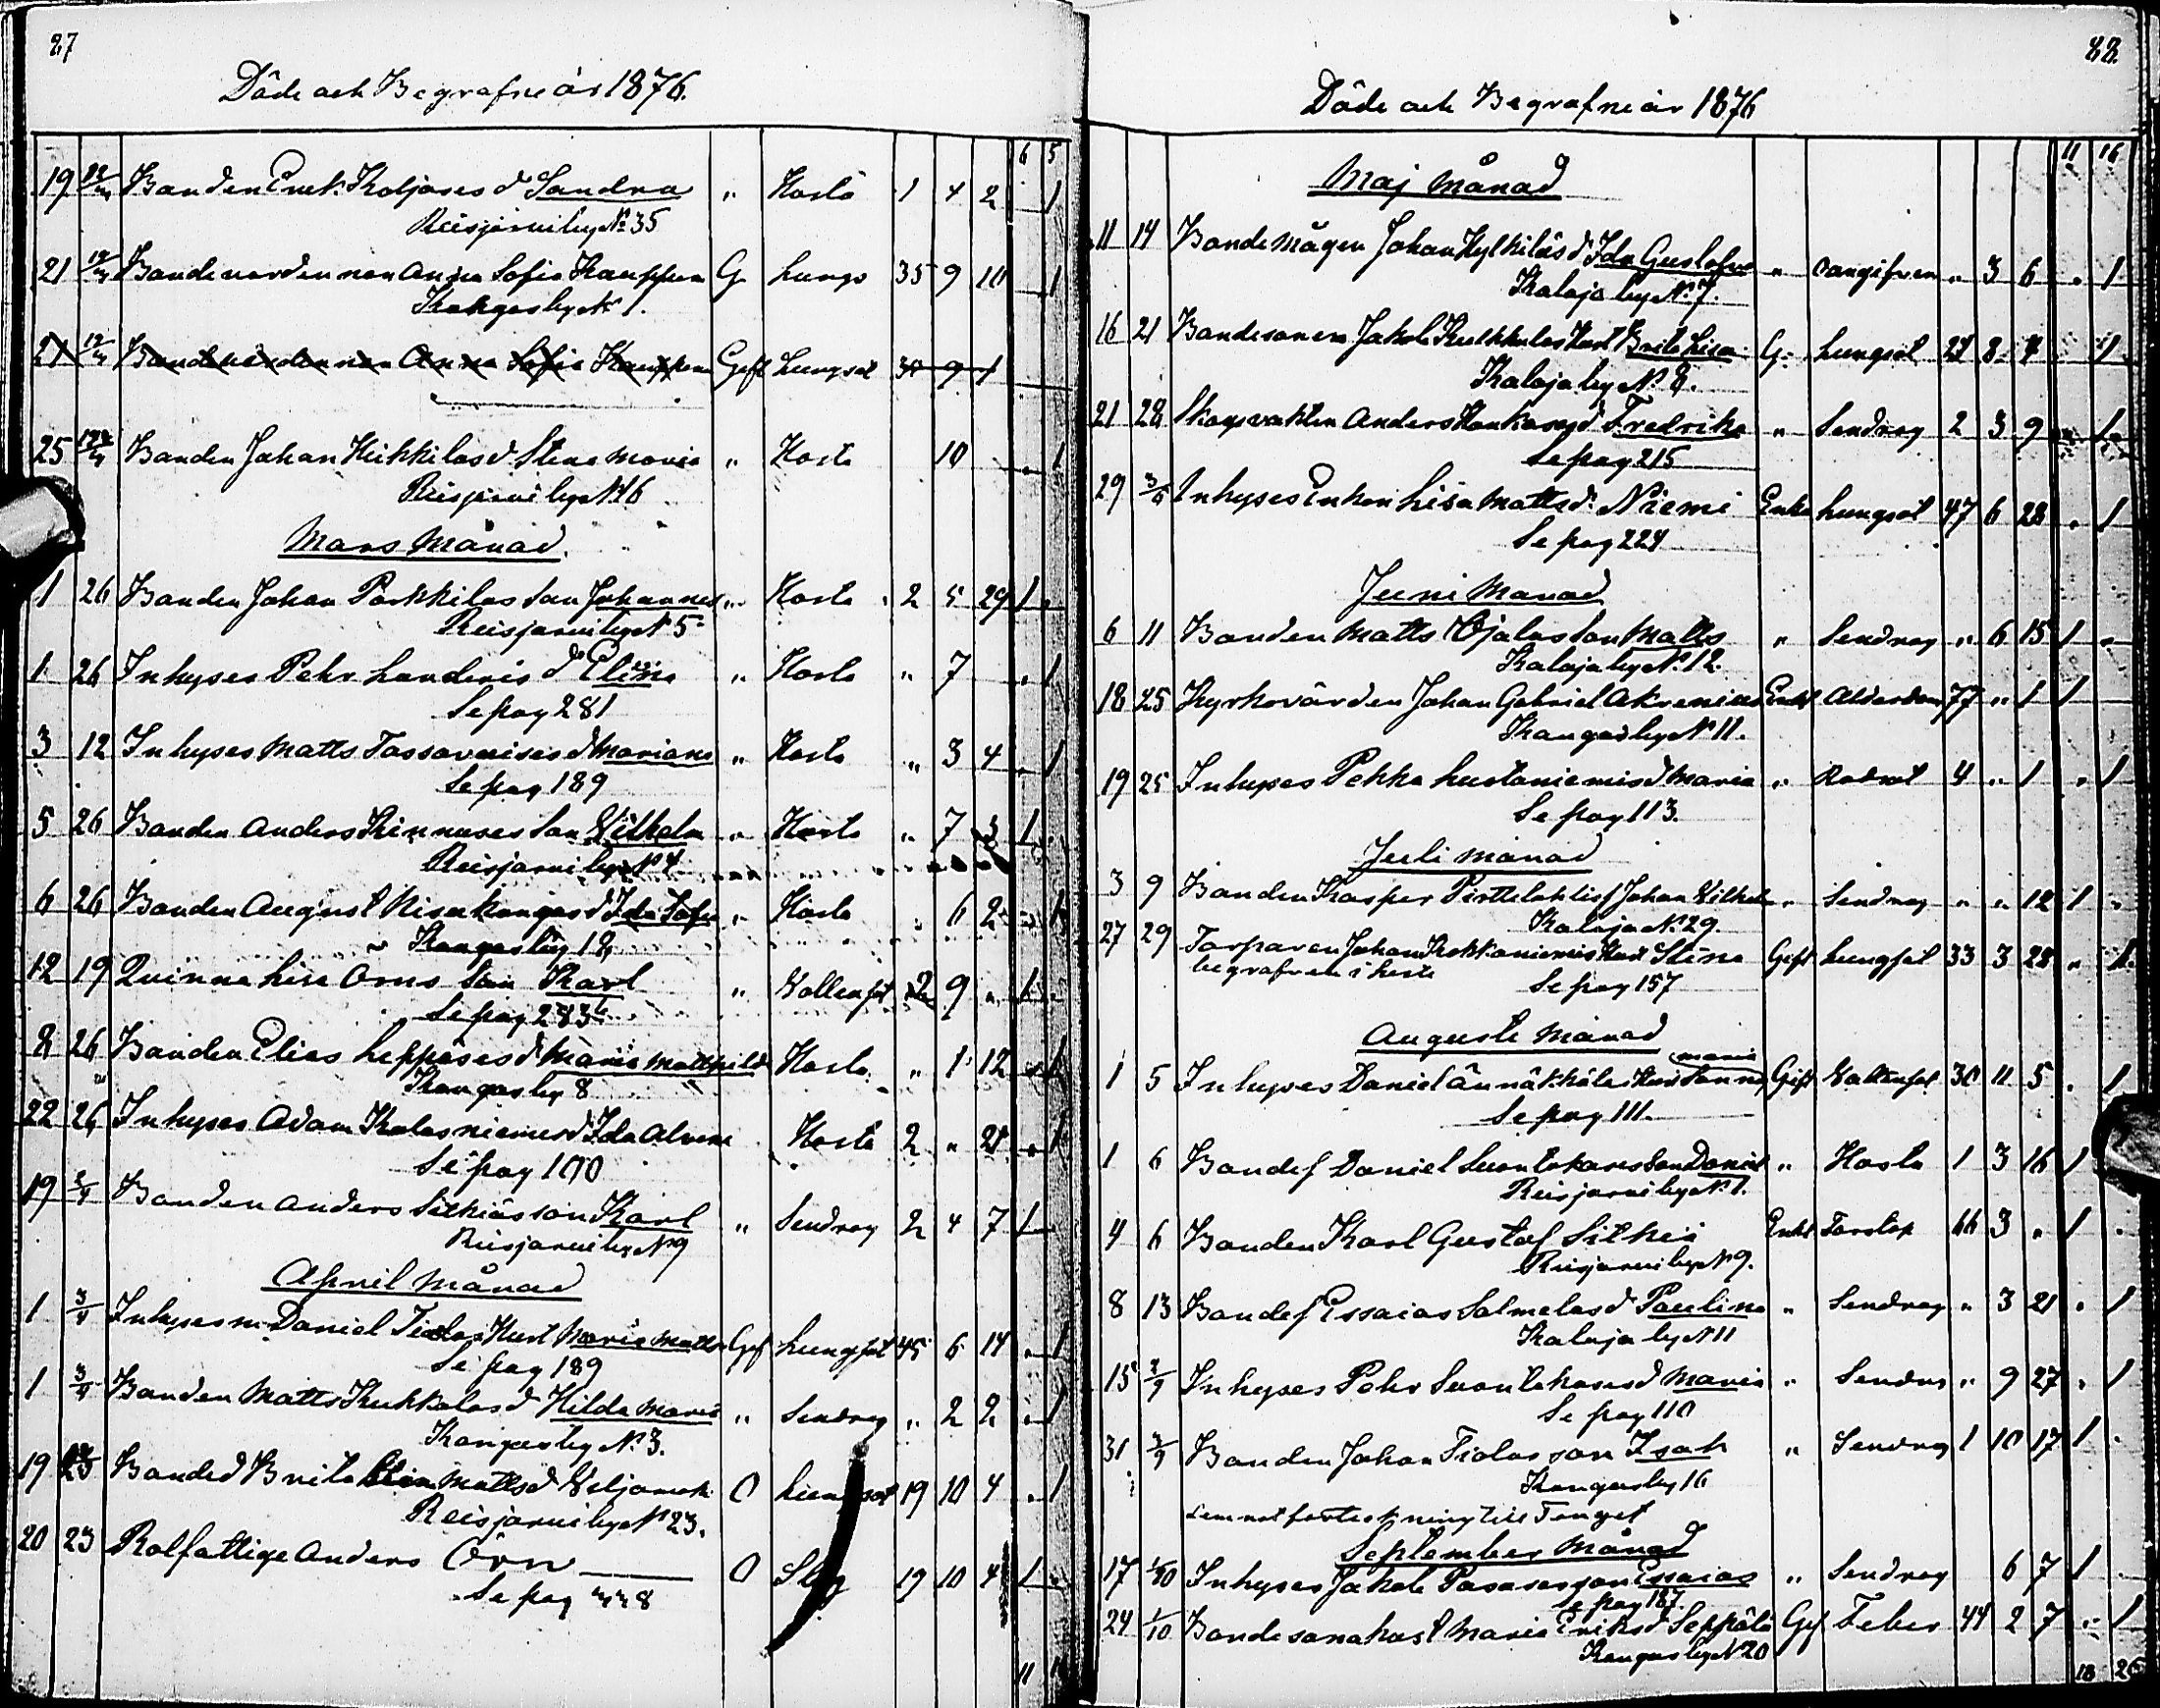 87
Döde och Begrafne år 1876.
6 5
19 12/3 Bonden Erik Koljoses d Sandra " Hosta 1 4 2 1
Reisjärvi by N:o 35
21 12/3 Bondevärdennan Anna Sofia Kauppinen G Lungs 35 9 10 1
Kangas by N 1.
21 12/3 Bondevärdennan Anna Sofia Kauppinen Gift Lungsot 35 9 1
25 Bonden Johan Heikkilas d. Stina Maria " Hosta 10 1
Reisjärvi by N 16
Mars Månad.
1 26 Bonden Johan Parkkilas son Johannes " Hosta 2 5 29 1
Reisjärvi by N 5
1 26 Inhyses Pehr Landenis d Elina " Hosta " 7 1
Se pag 281
3 12 Inhyses Matts Tassavaises d Mariana " Hosta " 3 4 1
Se pag 189
5 26 Bonden Anders Kinnuses son Vilhelm " Hosta " 7 3 1
Reisjärvi by N 4
6 26 Bonden August Nisukangas d Ida Sofia " Hosta 6 2 1
Kangas by 18
12 19 Qvinnan Lisa Orns son Karl " Vattensot 2 9 " 1
Se pag 283
8 26 Bonden Elias Leppäses d Maria Mathild Hosta " 1 12 1
Kangas by 8
22 26 Inhyses Adam Kalasniemis d Ida Alvina Hosta 2 " 28 1
Se pag 100
19 2/4 Bonden Anders Silkiäs son Karl " Sendrag 2 4 7 1
Reisjärvi by N 9
April Månad
1 3/4 Inhyses m Daniel Tiolas Hust Maria Matts Gif Lungsot 45 6 14 1
Se pag 189
1 3/4 Bonden Matts Kukkolas d Hilda Maria " Sendrag " 2 2 1
Kangas by N:o 3.
19 23 Bonded Brita Matts d Veljamäki O Lungsot 19 10 4 1
Reisjärvi by N 23.
20 23 Rotfattige Anders Örn O 19 10 4 1
Se pag 228
11
88.
Döde och Begrafne år 1876
11 16
Maj Månad
11 14 Bondemågen Johan Kylkiläs d Ida Gustafva " oangifven " 3 6 1
Kalaja by N:o 7.
16 21 Bondesonen Jakob Kukkolas Hust Brita Lisa G. Lungsot 21 8 4 1
Kalaja by N:o 8.
21 28 Skogsvakten Anders Honkasesd Fredrika " Sendrag 2 3 9 1
Se pag 215
29 3/6 Inhyses Enkan Lisa Matts d. Niemi Enka Lungsot 47 6 28 1
Se pag 224
Juni Månad
6 11 Bonden Matts Ojalas son Matts " Sendrag " 6 15 1
Kalaja by N:o 12.
18 25 Kyrkovärden Johan Gabriel Akrenius Enkl Alderdom 77 " 1 1
Kangas by N 11.
19 25 Inhyses Pekka Lustaniemis d Maria " Rödsot 4 " 1 1
Se pag 113.
Juli månad
3 9 Bonden Kasper Pirttilahtis f Johan Vilhelm " Sendrag " " 12 1
Kalaja N:o 29
27 29 Torparen Johan Kokkoniemis Hust Stina Gift Lungsot 33 3 28 1
begrafven i
Se pag 157
Augusti månad
1 5 Inhyses Daniel Äunäkkäläs Hust Sanna Maria Gift Vattensot 30 11 5 1
Se pag 111.
1 6 Bondes Daniel Suontakases son Daniel " Hosta 1 3 16 1
Reisjärvi by N 1.
4 6 Bonden Karl Gustaf Silkiä Enkl 66 3 " 1
Reisjärvi by N 9.
8 13 Bondes Essaias Salmelas d Paulina " Sendrag " 3 21 1
Kalaja by N 11
15 3/9 Inhyses Pehr Suontakases d Maria " Sendrag " 9 27 1
Se pag 110
31 3/9 Bonden Johan Tiolas son Isak " Sendrag 1 10 17 1
Kangas by 16
Lemnat förteckning till Tinget
September Månad
17 1/10 Inhyses Jakob Pasases son Essaias " Sendrag 6 7 1
Se pag 187
24 1/10 Bondesonahust Maria Eriks d Seppälä Gif Feber 44 2 7 1
Kangas by N 20
18 26